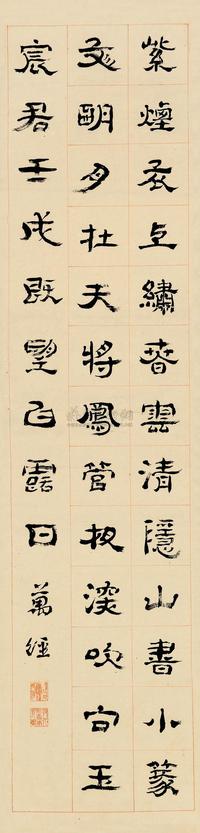 紫煙衣上繡春雲清隱山書小篆
文明月在天將鳳管夜深吹向玉
宸君壬戌既望白露日
萬經